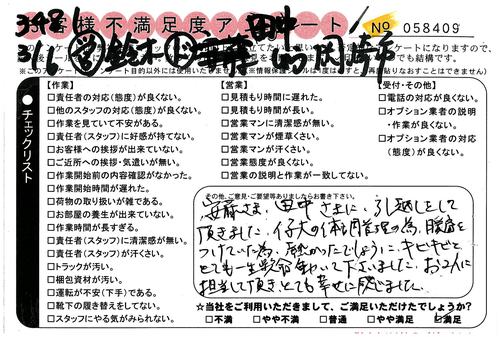 お客様不満足度アンケート
No 058409
3486
3/16
鈴木
田中
岡崎市
チェックリスト
【作業】
□責任者の対応(態度)が良くない。
□他のスタッフの対応(態度)が良くない。
□作業を見ていて不安がある。
□責任者(スタッフ)に好感が持てない。
□お客様への挨拶が出来ていない。
□ご近所への挨拶・気遣いが無い。
□作業開始前の内容確認がなかった。
□作業開始時間が遅れた。
□荷物の取り扱いが雑である。
□お部屋の養生が出来ていない。
□作業時間が長すぎる。
□責任者(スタッフ)に清潔感が無い。
□責任者(スタッフ)が汗くさい。
□トラックが汚い。
□梱包資材が汚い。
□運転が不安(下手)である。
□靴下の履き替えをしてない。
□スタッフにやる気がみられない。
【営業】
□見積もり時間に遅れた。
□見積もり時間が長い。
□営業マンに清潔感が無い。
□営業マンが煙草くさい。
□営業マンが汗くさい。
□営業態度が良くない。
□営業の説明と作業が一致してない。
【受付・その他】
□電話の対応が良くない。
□オプション業者の説明
・作業が良くない。
□オプション業者の対応
(態度)が良くない。
その他、ご意見・ご要望等ありましたらお書き下さい。
安藤さま、田中さまに、引越しをして
頂きました。仔犬の体調管理の為、暖房を
つけていた為、暑かったでしょうに、キビキビと
とても一生懸命やって下さいました。お2人に
担当して頂きとても幸せに感じました。
☆当社をご利用いただきまして、ご満足いただけたでしょうか?
□不満 □やや不満 □普通 □やや満足 ☑満足